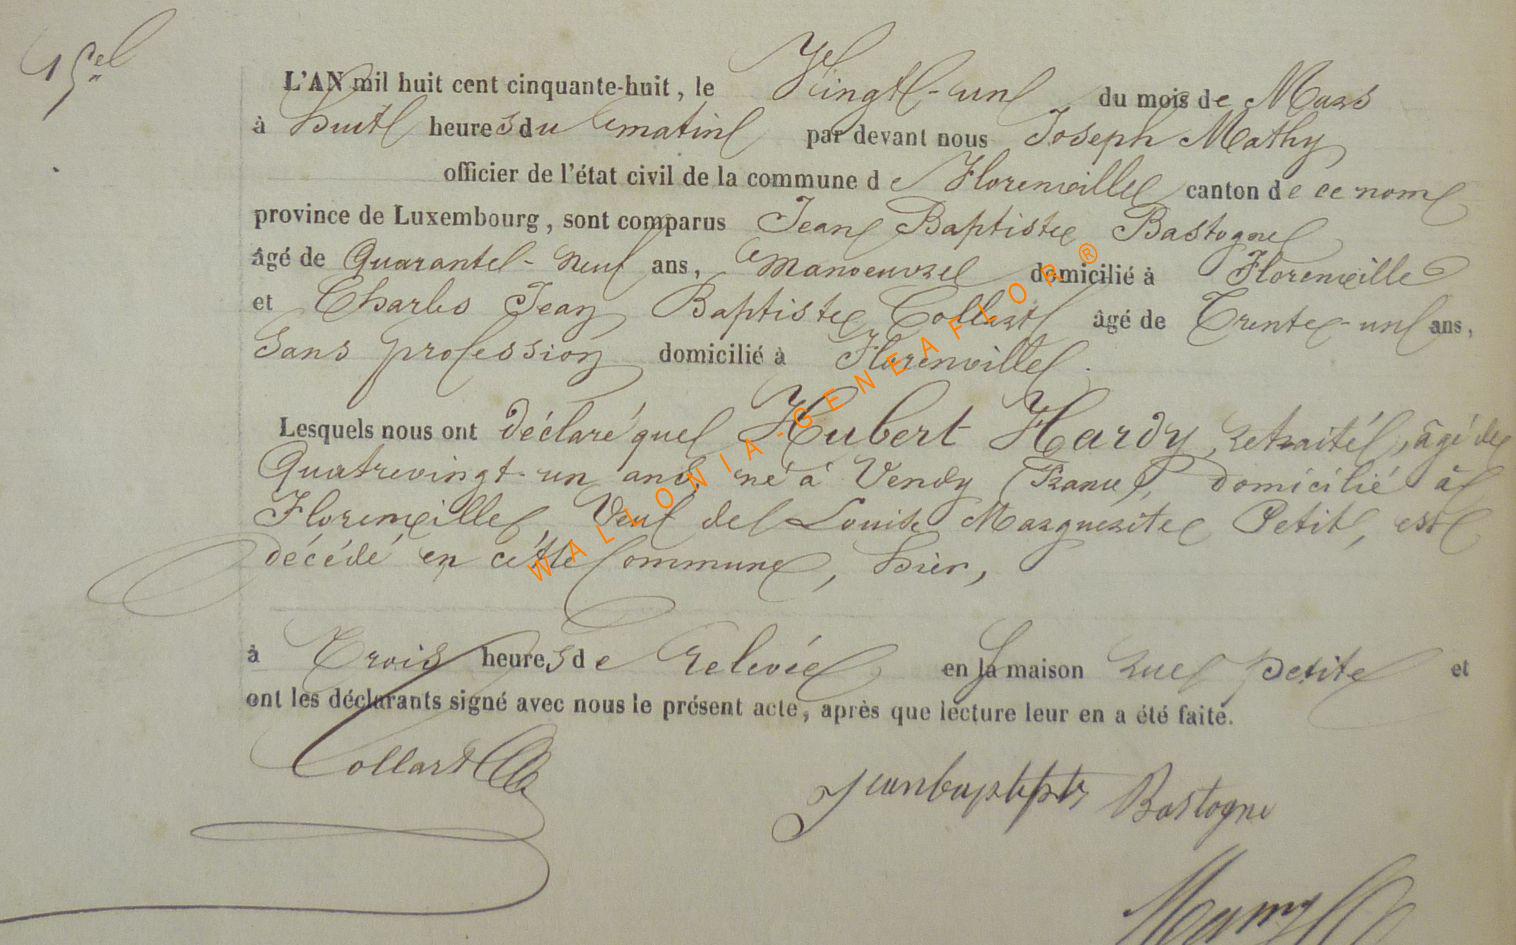 15el
L'AN mil huit cent cinquante-huit, le Vingt-un du mois de Mars
à huit heures du matin par devant nous Joseph Mathy
officier de l'état civil de la commune de Florenville canton de ce nom
province de Luxembourg, sont comparus Jean Baptiste Bastogne
âgé de Quarante-neuf ans, manoeuvre domicilié à Florenville
et Charles Jean Baptiste Collart âgé de Trente-un ans,
sans profession domicilié à Florenville.
Lesquels nous ont déclaré que Hubert Hardy, retraité, âgé de
Quatrevingt-un ans, né à Vendy (France), domicilié à
Florenville, Veuf de Louise Marguerite Petit, est
décédé en cette Commune, hier,
à Trois heures de relevée en la maison rue petite et
ont les déclarants signé avec nous le présent acte, après que lecture leur en a été faite.
Collart
Jean baptiste Bastogne
WALLONIA-GENEAFLOR®